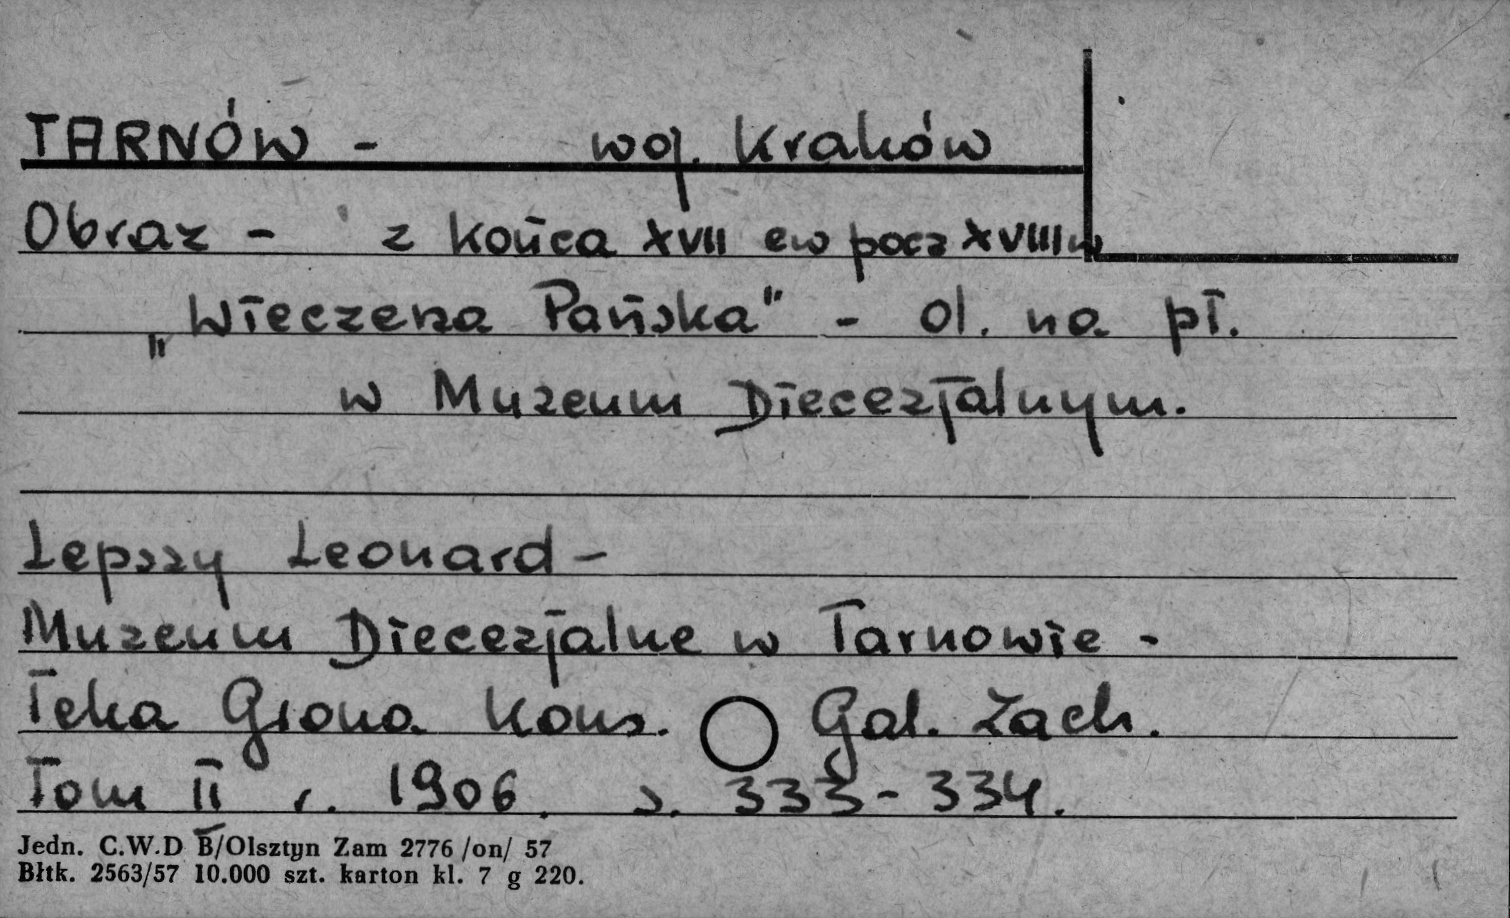 TARNÓW - woj. Kraków
Obraz - z końca XVII ew pocz XVIII w
„Wieczerza Pańska" - ol. na pł.
w Muzeum Diecezjalnym.
Lepszy Leonard -
Muzeum Diecezjalne w Tarnowie -
Teka Grona Kons. Gal. Zach.
Tom II r. 1906. s. 333-334.
Jedn. C.W.D B/Olsztyn Zam 2776 /on/ 57
Błtk. 2563/57 10.000 szt. karton kl. 7 g 220.